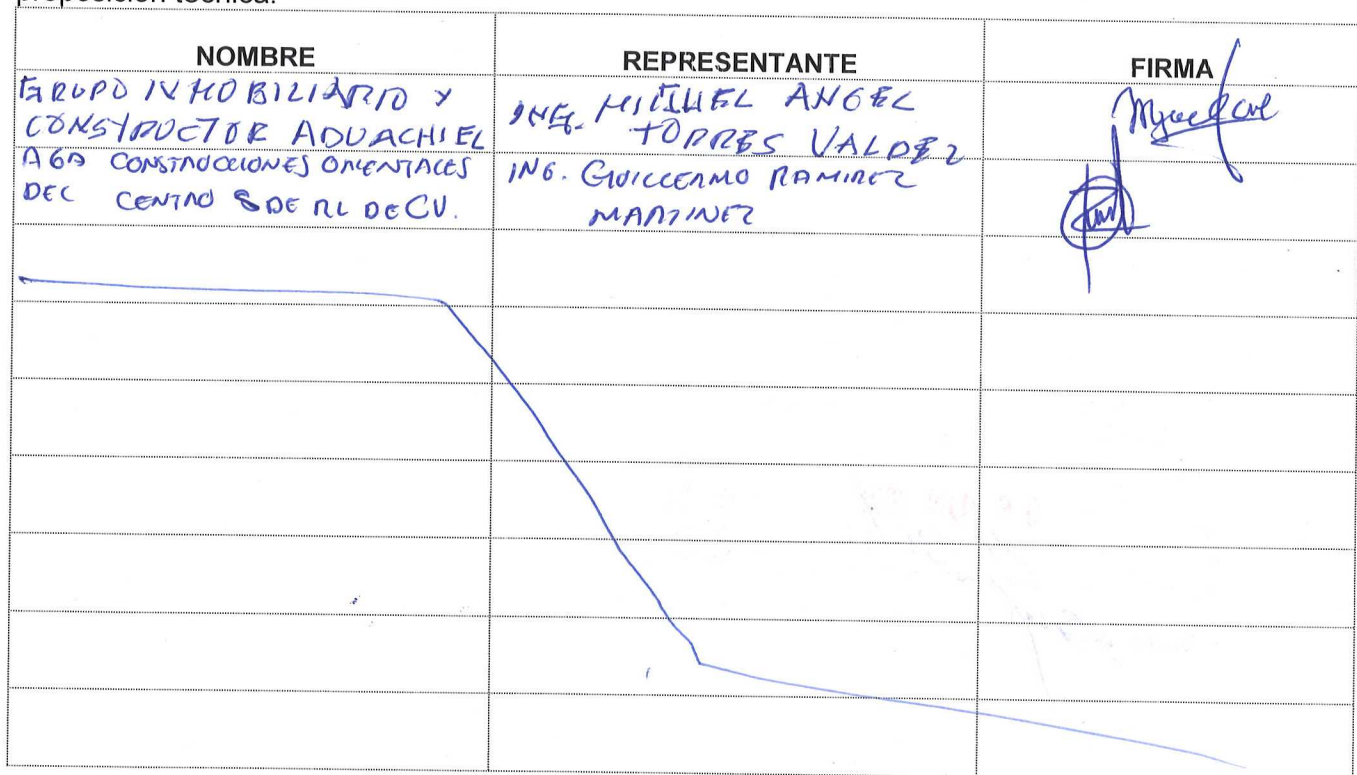 proposición técnica.
NOMBRE REPRESENTANTE FIRMA
GRUPO INMOBILIARIO Y
CONSTRUCTOR ADUACHIEL
ING. MIGUEL ANGEL
TORRES VALDEZ
AGA CONSTRUCCIONES ORIENTALES
DEL CENTRO S DE RL DE CV.
ING. GUILLERMO RAMIREZ
MARTINEZ